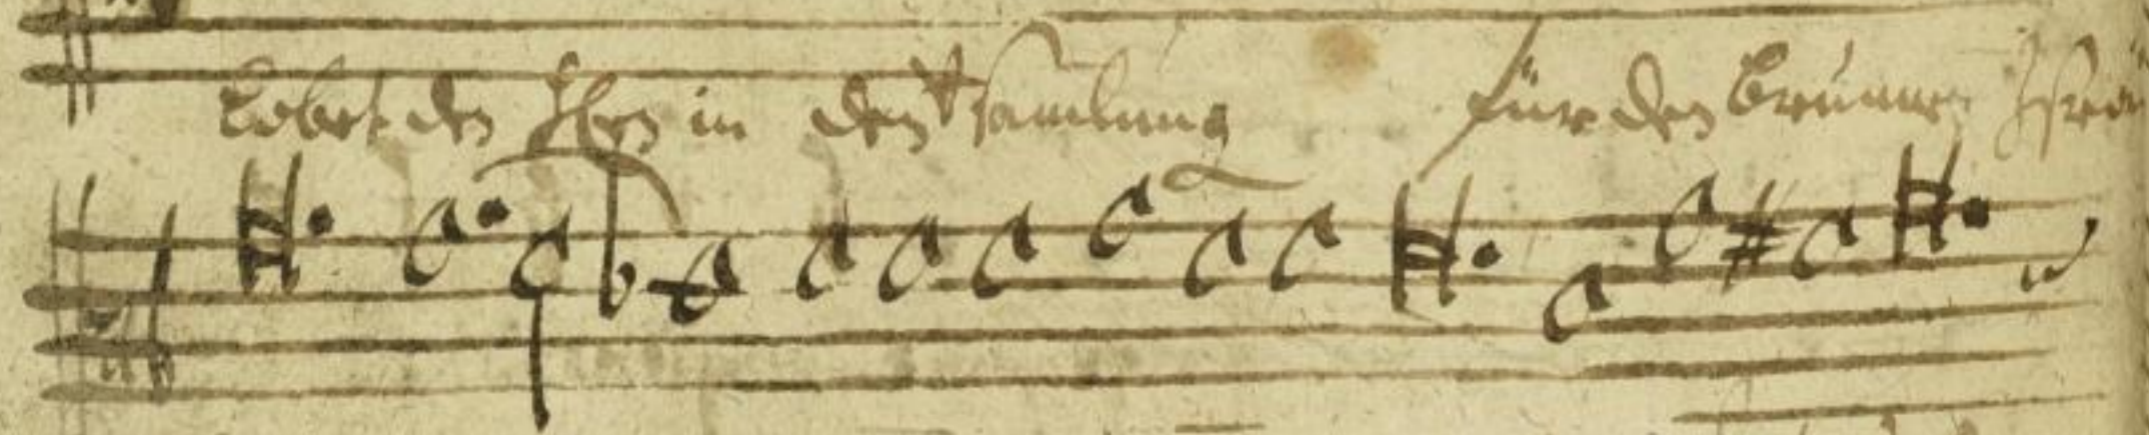 Lobet den Hren in den Vsamlung für den Brunnen Israe